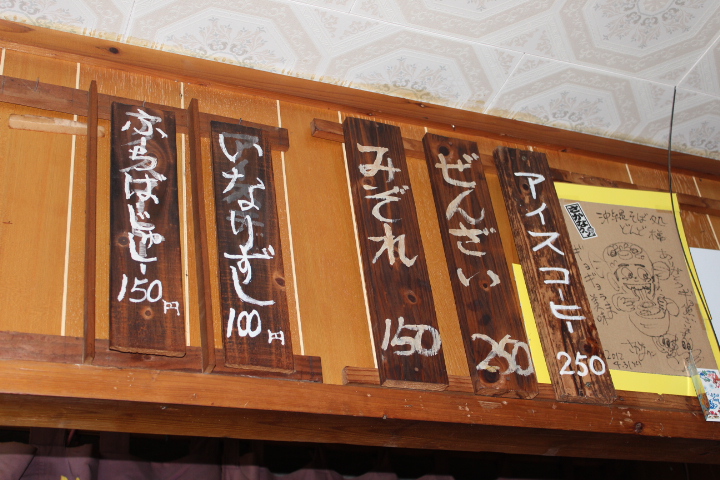 ふーちばじゅーしー
150円
いなりずし
100円
みぞれ
150
ぜんざい
250
アイスコーヒー
250
沖縄そば処
どんど 様
2012